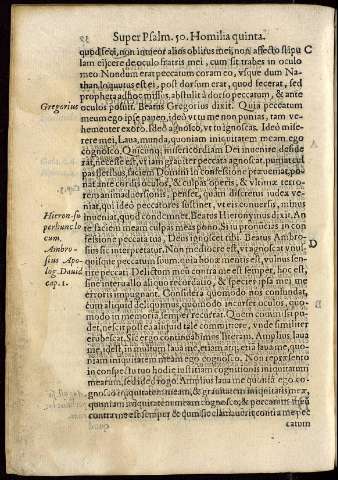 Super Psalm. 50. Homilia quinta.
quod feci, non intueor alios oblitus mei, non affecto stipu C
lam eijcere de oculo fratris mei, cum sit trabes in oculo
meo Nondum erat peccatum coram eo, vsque dum Na
than, Iniquus est ei, post dorsum erat, quod fecerat, sed
propheta ad hoc missus, abstulit à dorso peccatum, & ante
Gregorius oculos posuit. Beatus Gregorius dixit. Quia peccatum
meum ego ipse paueo, ideò vt tu me non punias, tam ve
hementer exoro. Ideò agnosco, vt tu ignoscas. Ideò mise
rere mei, Laua, munda, quoniam iniquitatem meam ego
cognosco. Quicunq; misericordiam Dei inuenire deside
rat, necesse est, vt tam grauiter peccata agnoscat,
pas faciem Domini in confessione præueniat, po
nat ante cordis oculos, & culpas operis, & vltimæ terro-
rem animaduersionis, penset, quàm districtus iudex ve-
niat, qui ideò peccatores sustinet, vt eis conuersis, minus
Hieron-su inueniat, quod condemnet. Beatus Hieronymus dixit. An
per hunc lo te faciem meam culpas meas pono. Si tu pronuncias in con
cum. fessione peccata tua, Deus ignoscet tibi. Beatus Ambro-
Ambro- sius sic interpretatur. Non mediocre est, vt agnoscat vnus D
sius Apo- quisque peccatum suum, quia hoc æ mentis est, vulnus sen-
log. Dauid tire peccati Delictum meum contra me est semper, hoc est,
cap. 1. sine interuallo aliquo recordabor, & species ipsa mei me
erroris impugnat. Considera quomodo nos confundat,
cùm aliquid delinquimus, quandò se incurset oculis, quo-
modo in memoria semper recursat. Quem enim lsit pu-
det, nescit postea aliquid tale committere, vnde similiter
erubescat. Sic ergo continuabimus literam. Amplius laua
me,
quoniam iniquitatem meam ego cognosco. Non repræsento
in conspectu tuo hodie iustitiam cognitionis iniquitatum
mearum, sed ideò rogo. Amplius laua me quia ego co-
gnosco iniquitatem meam, & grauitatem iniquitatis meæ,
quoniam iniquitatem meam cognosco, & peccatum meū
contra me est semper & dum sic clamauerit contra me pec
catum